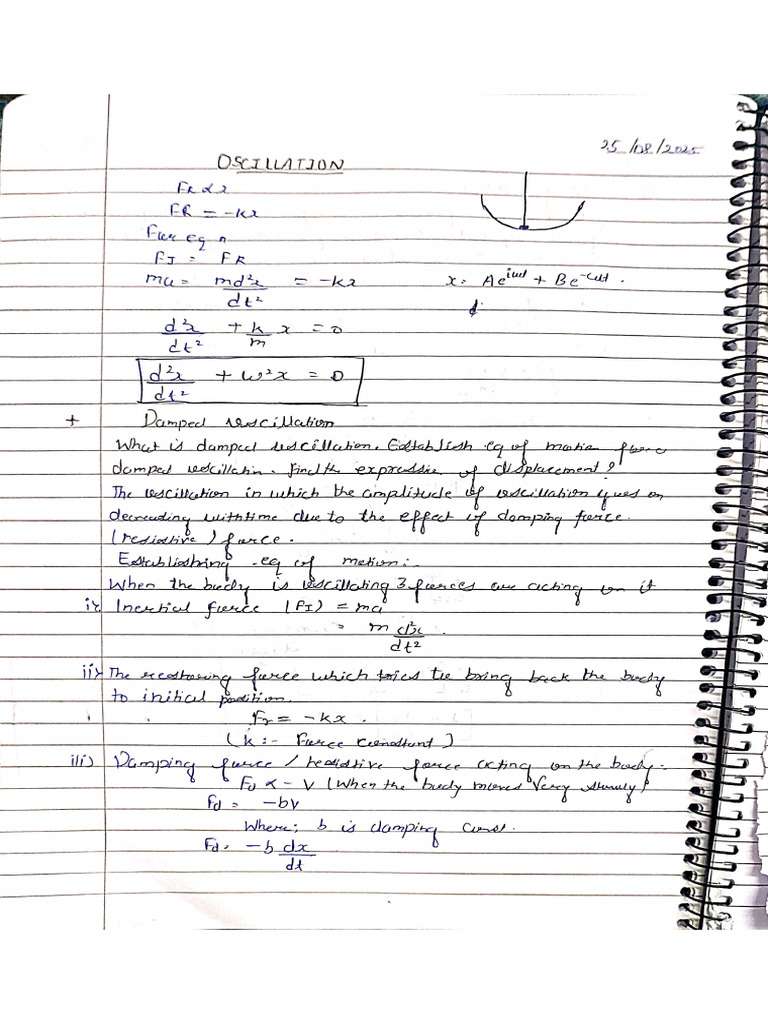 25/08/2025
OSCILLATION
FR ∝ x
FR = -kx
For eq n
FI = FR
ma = md²x/dt² = -kx
x = Ae^iωt + Be^-iωt.
d²x/dt² + k/m x = 0
d²x/dt² + ω²x = 0
+ Damped oscillation
What is damped oscillation. Establish eq of motion force
damped oscillatin. Find the expression of displacement?
The oscillation in which the amplitude of oscillation goes on
decreasing with time due to the effect of damping force.
(resistive) force.
Establishing eq of motion:-
When the body is oscillating 3 forces are acting on it
i) Inertial force (FI) = ma
= m d²x/dt².
ii) The restoring force which tries to bring back the body
to initial position.
Fr = -kx.
(k:- Force constant)
iii) Damping force / resistive force acting on the body.
Fd ∝ -V (When the body moves very slowly)
Fd = -bv
Where; b is damping const.
Fd = -b dx/dt